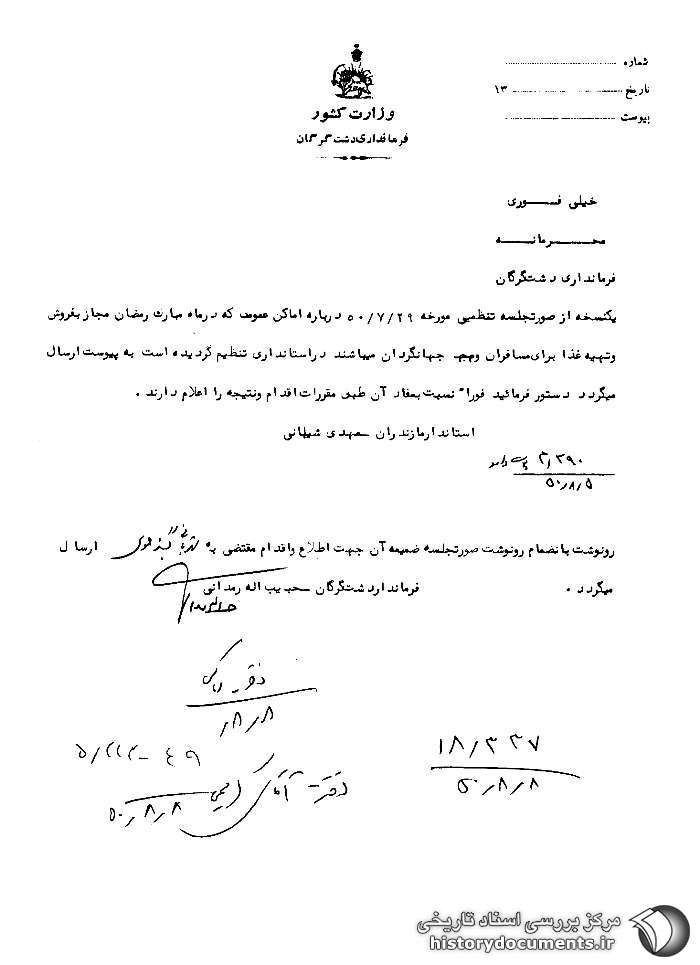 شماره
تاریخ ۱۳
پیوست
وزارت کشور
فرمانداری دشت گرگان
خیلی فـــوری
محـــرمانـــه
فرمانداری دشتگرگان
یکنسخه از صورتجلسه تنظیمی مورخه ۵۰/۷/۲۹ درباره اماکن عمومی که درماه مبارک رمضان مجاز بفروش
وتهیه غذا برای مسافران وجهانگردان میباشند دراستانداری تنظیم گردیده است به پیوست ارسال
میگردد دستور فرمائید فوراً نسبت بمفاد آن طبق مقررات اقدام ونتیجه را اعلام دارند .
استاندارمازندران ـ مهدی شیبانی
۵۰/۸/۵
رونوشت بانضمام رونوشت صورتجلسه ضمیمه آن جهت اطلاع واقدام مقتضی به ارسال
میگردد .
فرمانداردشتگرگان ـ حبیب اله رمدانی
دفتر
۸/۸
۱۸/۳۳۷
۵۰/۸/۸
دفتر
۵۰/۸/۸
مرکز بررسی اسناد تاریخی
historydocuments.ir